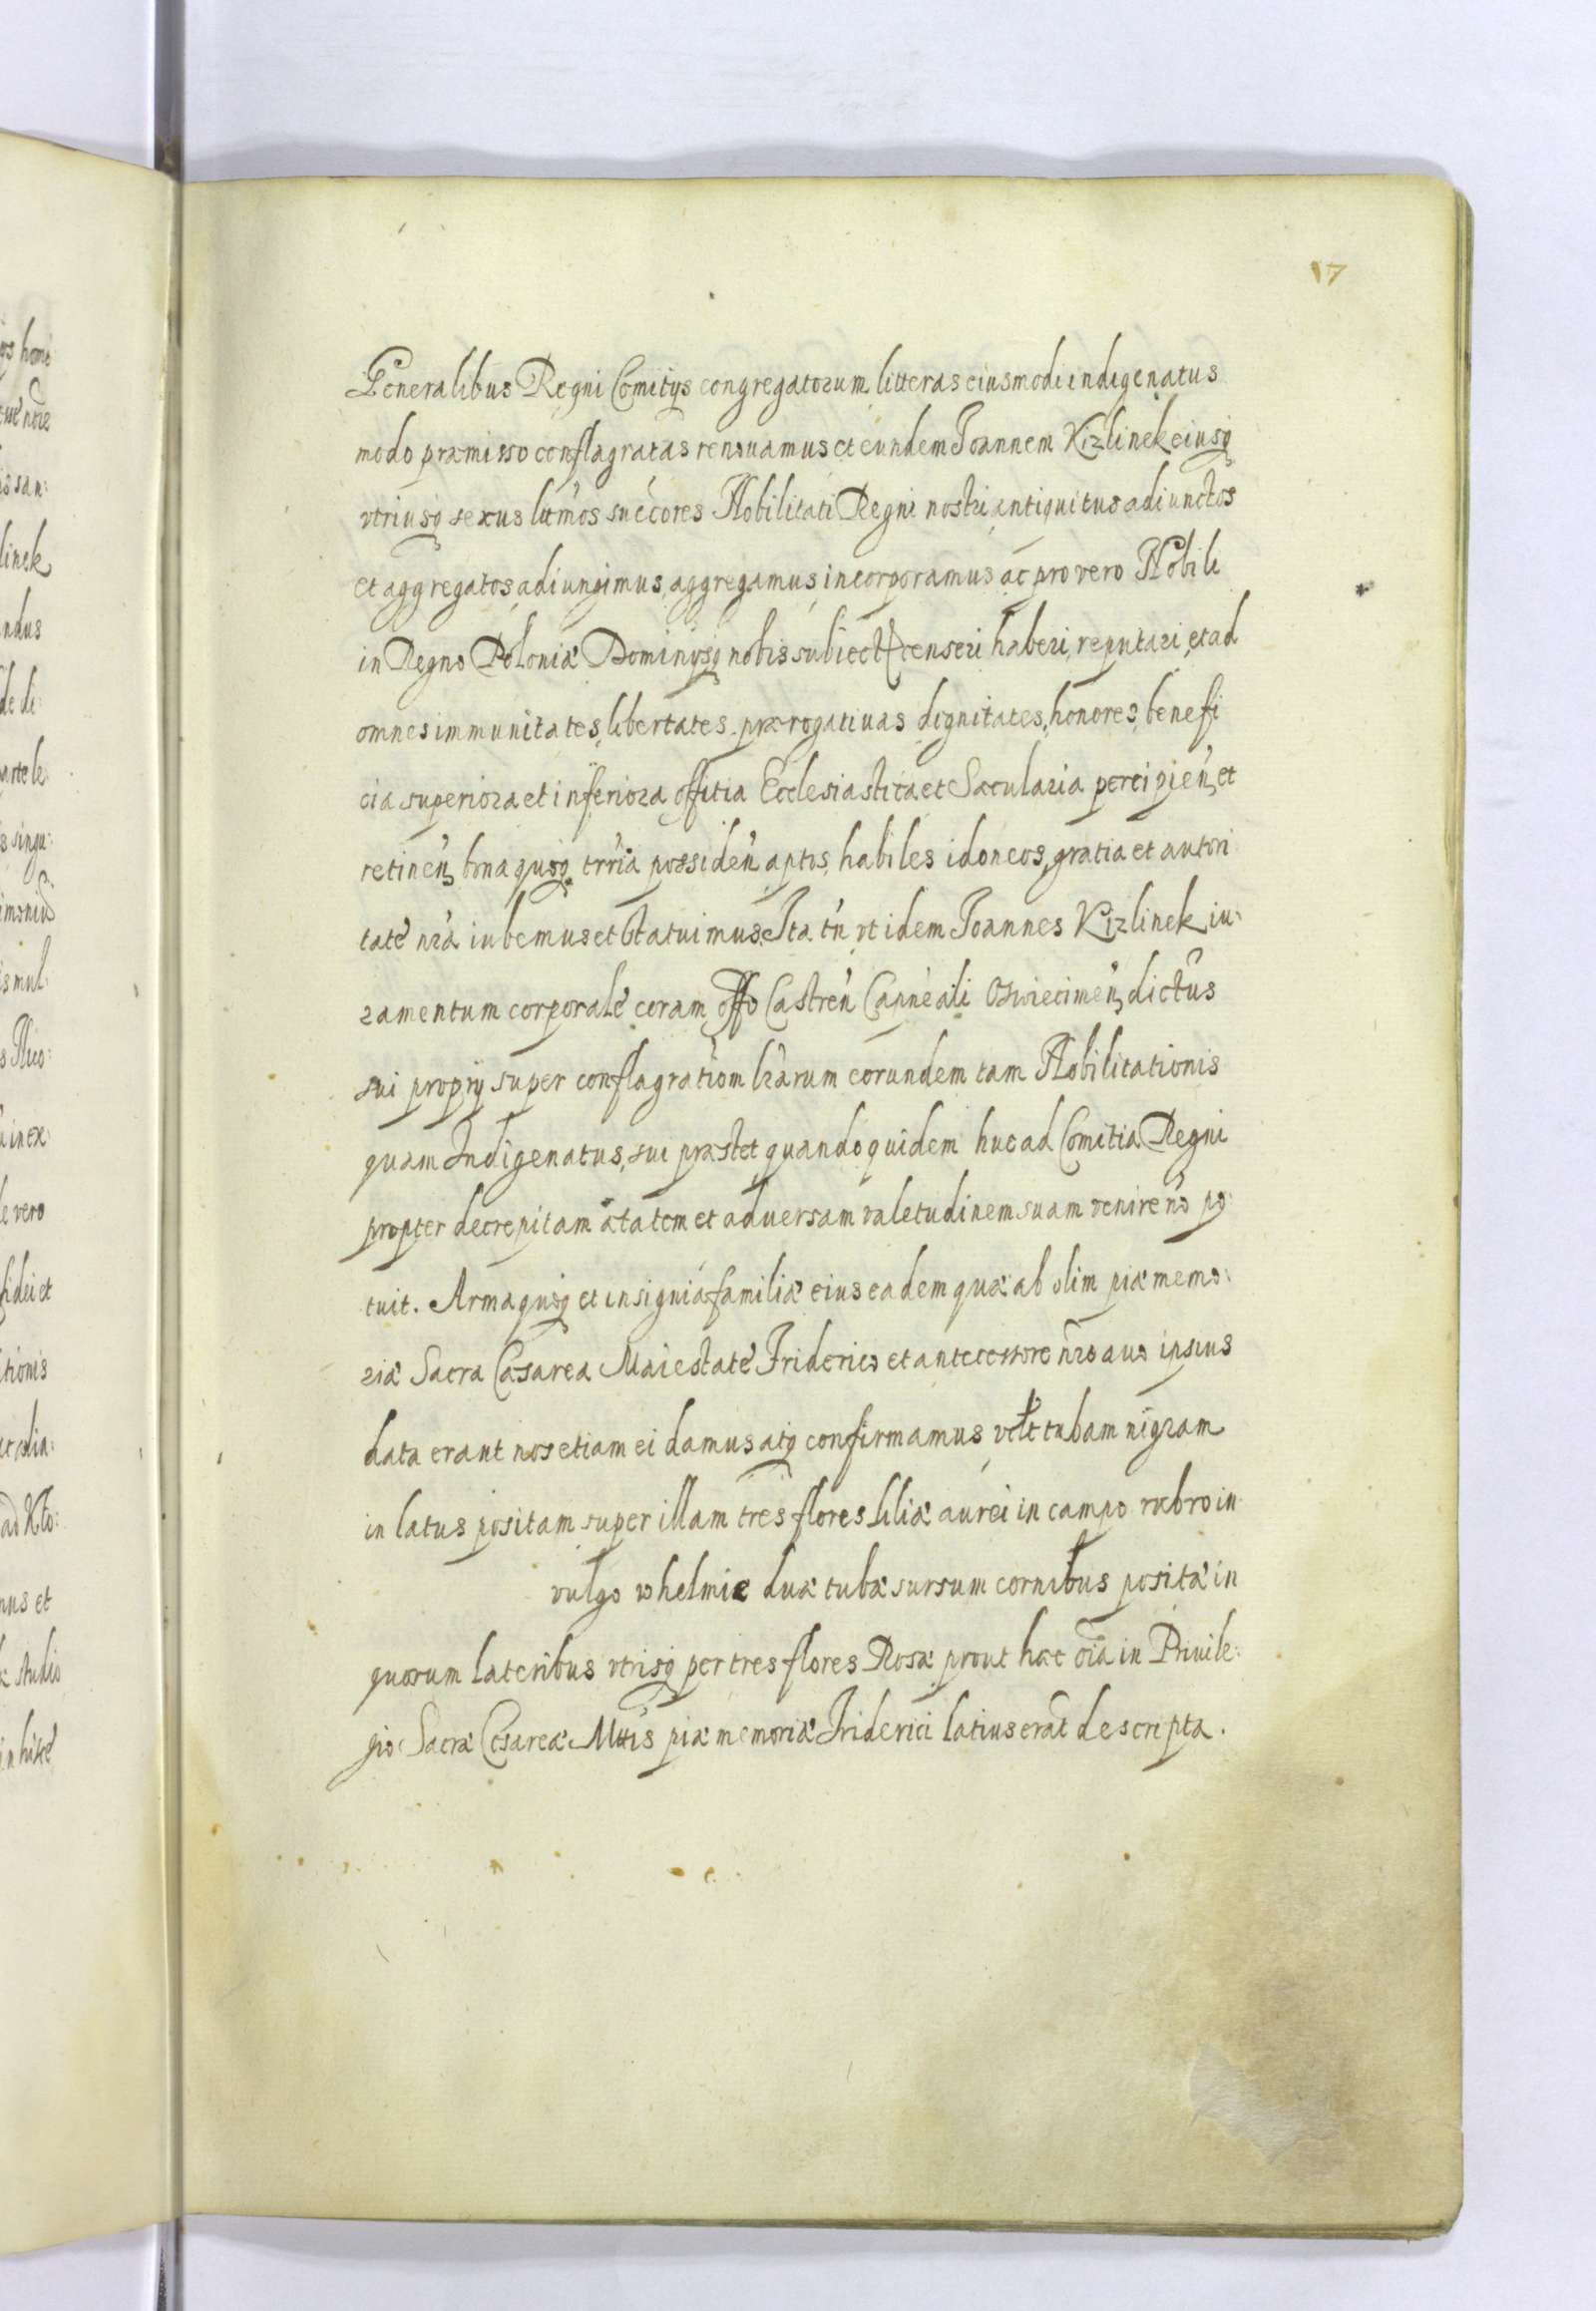 17
Generalibus Regni Comitijs congregatorum litteras eiusmodi indigenatus
modo præmisso conflagratas renovamus et eundem Joannem Kizlinek eiusq
vtriusq sexus ltmos succores Nobilitati Regni nostri antiquitus adiunctos
et aggregatos, adiungimus, aggregamus, incorporamus ac pro vero Nobili
in Regno Poloniæ Dominijsq nobis subiect censeri haberi, reputari, et ad
omnes immunitates, libertates prærogatiuas dignitates, honores, benefi
cia superiora et inferiora offitia Ecclesiastica et Sæcularia percipien, et
retinen, bona quoq trria possiden aptos, habiles idoneos, gratia et autori
tate nra iubemus et statuimus. Ita tn vt idem Joannes Kizlinek iu:
ramentum corporale coram offo Castren Capneali Oswiecimen, dictus
sui proprij super conflagratiom lrarum eorundem tam Nobilitationis
quam Indigenatus, sui præstet quandoquidem huc ad Comitia Regni
propter decrepitam ætatem et aduersam valetudinem suam venire no po:
tuit. Arma quoq et insignia familiæ eius eadem quæ ab olim piæ memo:
riæ Sacra Cæsarea Maiestate Friderico et antecessore nro auo ipsius
data erant nos etiam ei damus atq confirmamus vclt tubam nigram
in latus positam super illam tres flores liliæ aurei in campo rubro in
vulgo w helmie duæ tubæ sursum cornibus positæ in
quorum lateribus vtrisq per tres flores Rosæ prout hæc oia in Priuile:
gio Sacræ Cesareæ Mttis piæ memoriæ Friderici latius erat descripta.